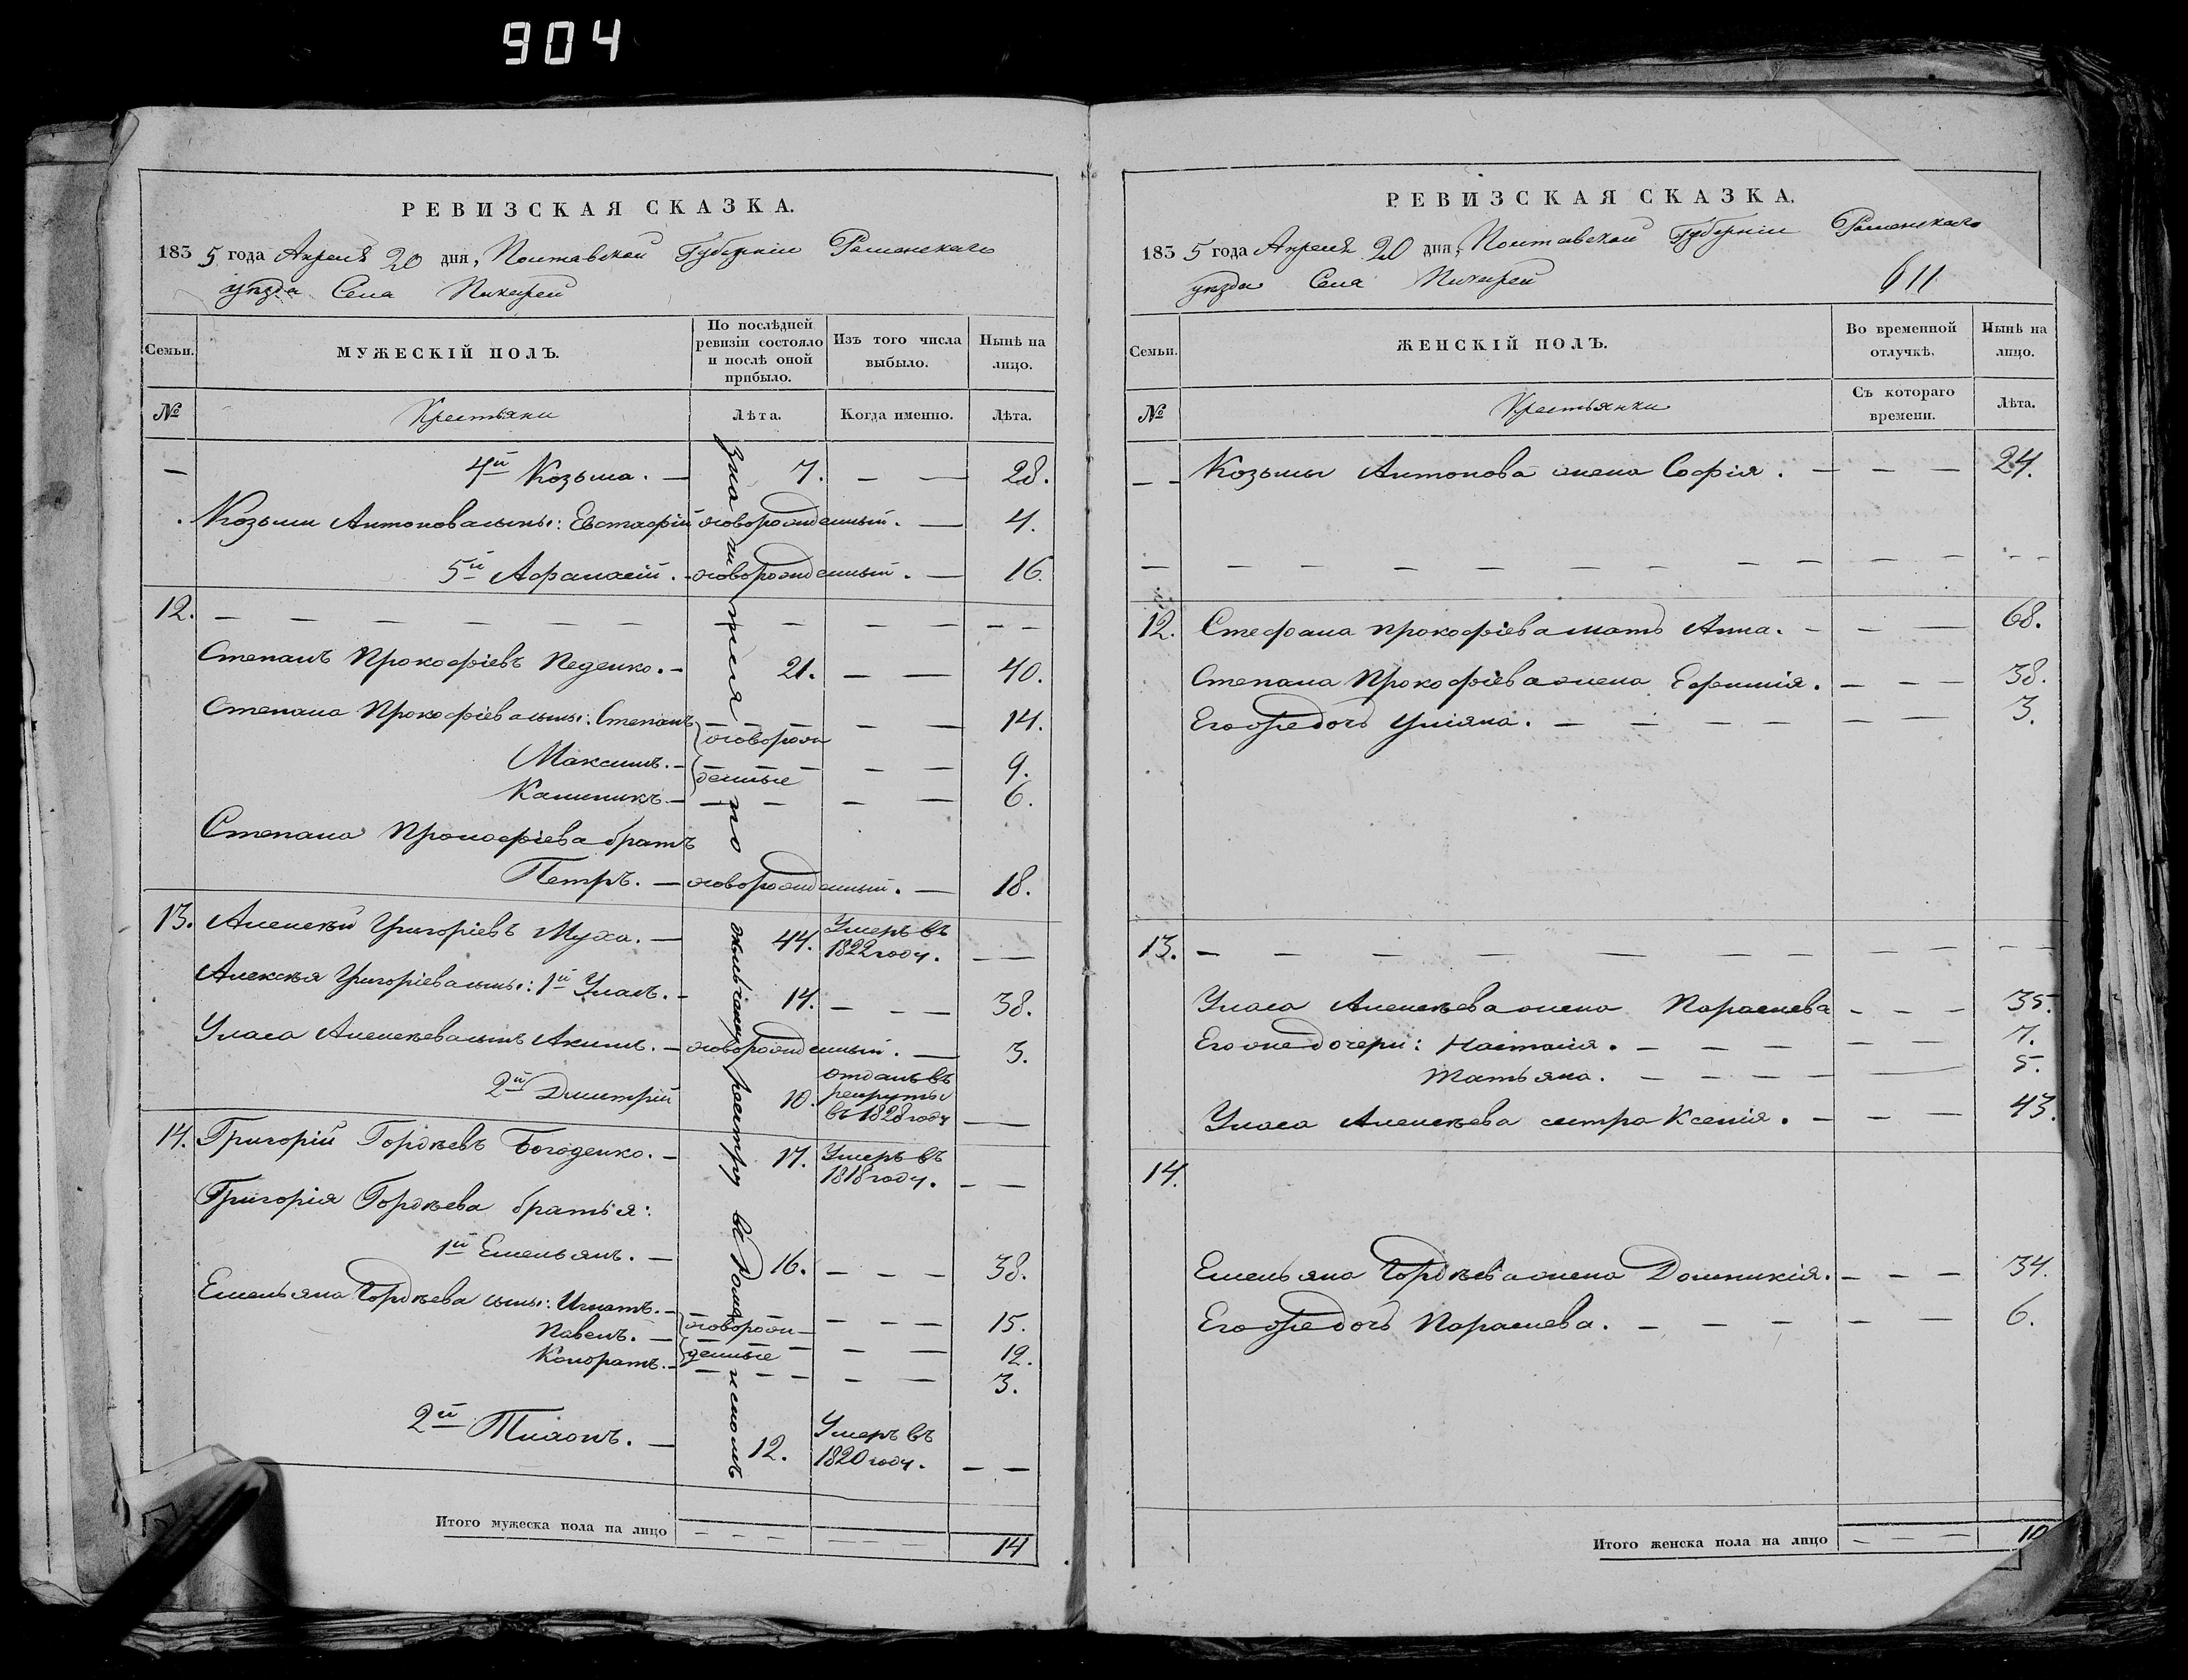 904
РЕВИЗСКАЯ СКАЗКА.
1835 года Апреля 20 дня, Полтавской Губерніи Роменскаго
уезда Села
Семьи.
МУЖЕСКІЙ ПОЛЪ.
По послѣдней ревизіи состояло и послѣ оной прибыло.
Изъ того числа выбыло.
Нынѣ на лицо.
№
Крестьяни
Лѣта.
Когда именно.
Лѣта.
— 4й Козьма. — 7. — — 28.
Козьми Антонова сынъ: Евстафій новорожденный. — 4.
5й Афанасій. — новорожденный. — 16.
12. — — — — — — — — — — —
Степанъ Прокофіевъ Педенко. — 21. — — 40.
Степана Прокофіева сыны: Степанъ — — — — — 14.
новорож
Максимъ. — — — — — — 9.
денные
Калиникъ — — — — — 6.
Степана Прокофіева братъ
Петръ. — новорожденный. — 18.
13. Алексѣй Григоріевъ Муха. — 44. Умеръ въ 1822 году. — —
Алексѣя Григоріева сыны: 1й Уласъ. — 14. — — — 38.
Уласа Алексѣева сынъ Акимъ. — новорожденный. — 3.
2й Дмитрій 10. отданъ въ рекруты въ 1828 году — —
14. Григорій Гордѣевъ Богоденко. — 17. Умеръ въ 1818 году. — —
Григорія Гордѣева братья:
1й Емельянъ. — 16. — — — 38.
Емельяна Гордѣева сыны: Игнатъ. — — — — 15.
новорож
Павелъ. — — — — — 12.
денные
Кондратъ. — — — — — — — 3.
2й Тихонъ. — 12. Умеръ въ 1820 году. — —
Итого мужеска пола на лицо — — — — — — 14
РЕВИЗСКАЯ СКАЗКА.
1835 года Апреля 20 дня, Полтавской Губерніи Роменскаго
уезда Села
611
Семьи.
ЖЕНСКІЙ ПОЛЪ.
Во временной отлучкѣ.
Нынѣ на лицо.
№
Крестьянки
Съ котораго времени.
Лѣта.
— — Козьмы Антонова жена Софія. — — — 24.
— — — — — — — — — — — — —
12. Стефана Прокофіева мать Анна. — — — 68.
Степана Прокофіева жена Ефимія. — — — 38.
Его же дочь Уліяна. — — — — — — 3.
13. — — — — — — — — — —
Уласа Алексѣева жена Параскева — — — 35.
Его же дочери: Настасія. — — — — — — 7.
Татьяна. — — — — — 5.
Уласа Алексѣева сестра Ксенія. — — — 43.
14.
Емельяна Гордѣева жена Домникія. — — — 34.
Его же дочь Параскева. — — — — — 6.
Итого женска пола на лицо — — — 10